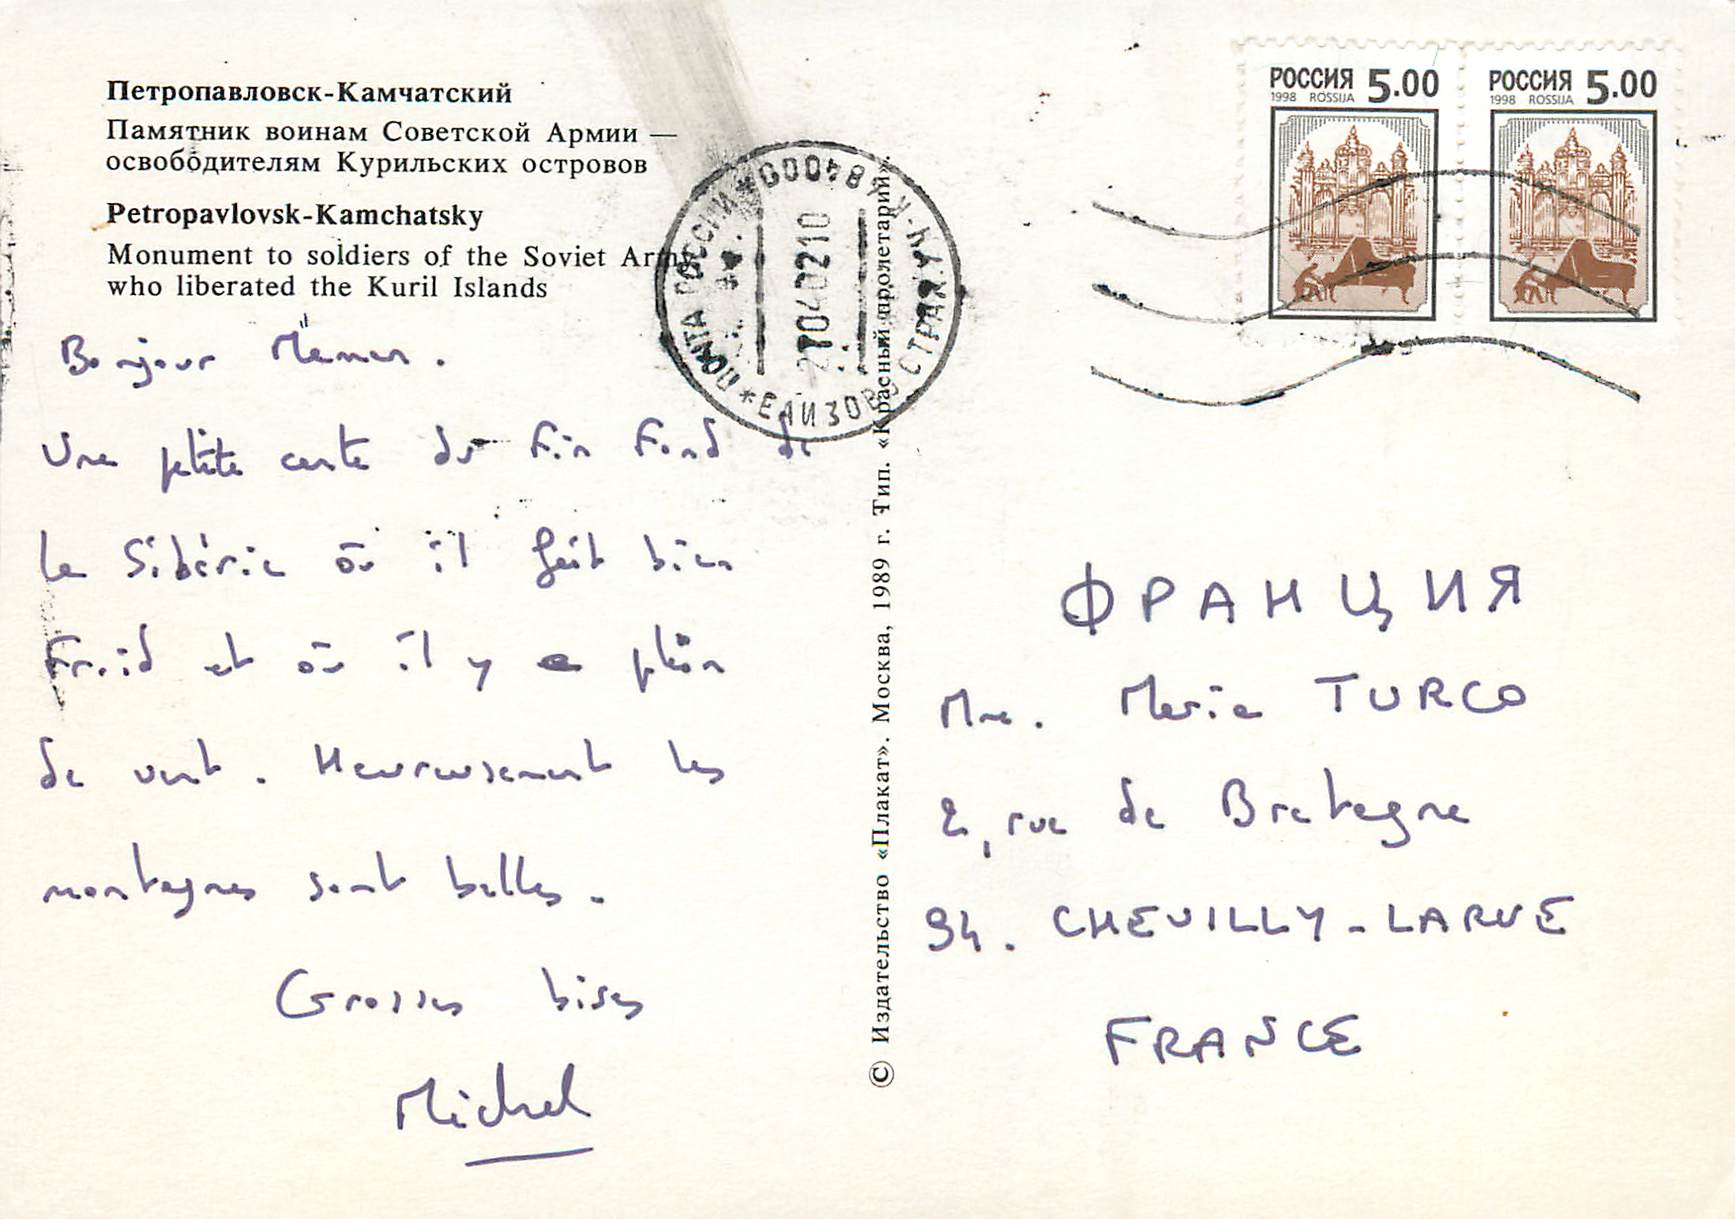 Петропавловск-Камчатский
Памятник воинам Советской Армии —
освободителям Курильских островов
Petropavlovsk-Kamchatsky
Monument to soldiers of the Soviet Army
who liberated the Kuril Islands
Bonjour Maman.
Une ptite carte du fin fond de
la Sibérie où il fait bien
froid et où il y a plein
de vent. Heureusement les
montagnes sont belles.
Grosses bises
Michel
ПОЧТА РОССИИ * 684000
270402 10
ЕЛИЗОВО
© Издательство «Плакат». Москва, 1989 г. Тип. «Красный пролетарий».
РОССИЯ 5.00
1998 ROSSIJA
РОССИЯ 5.00
1998 ROSSIJA
ФРАНЦИЯ
Mme. Maria TURCO
2, rue de Bretagne
94. CHEVILLY-LARUE
FRANCE